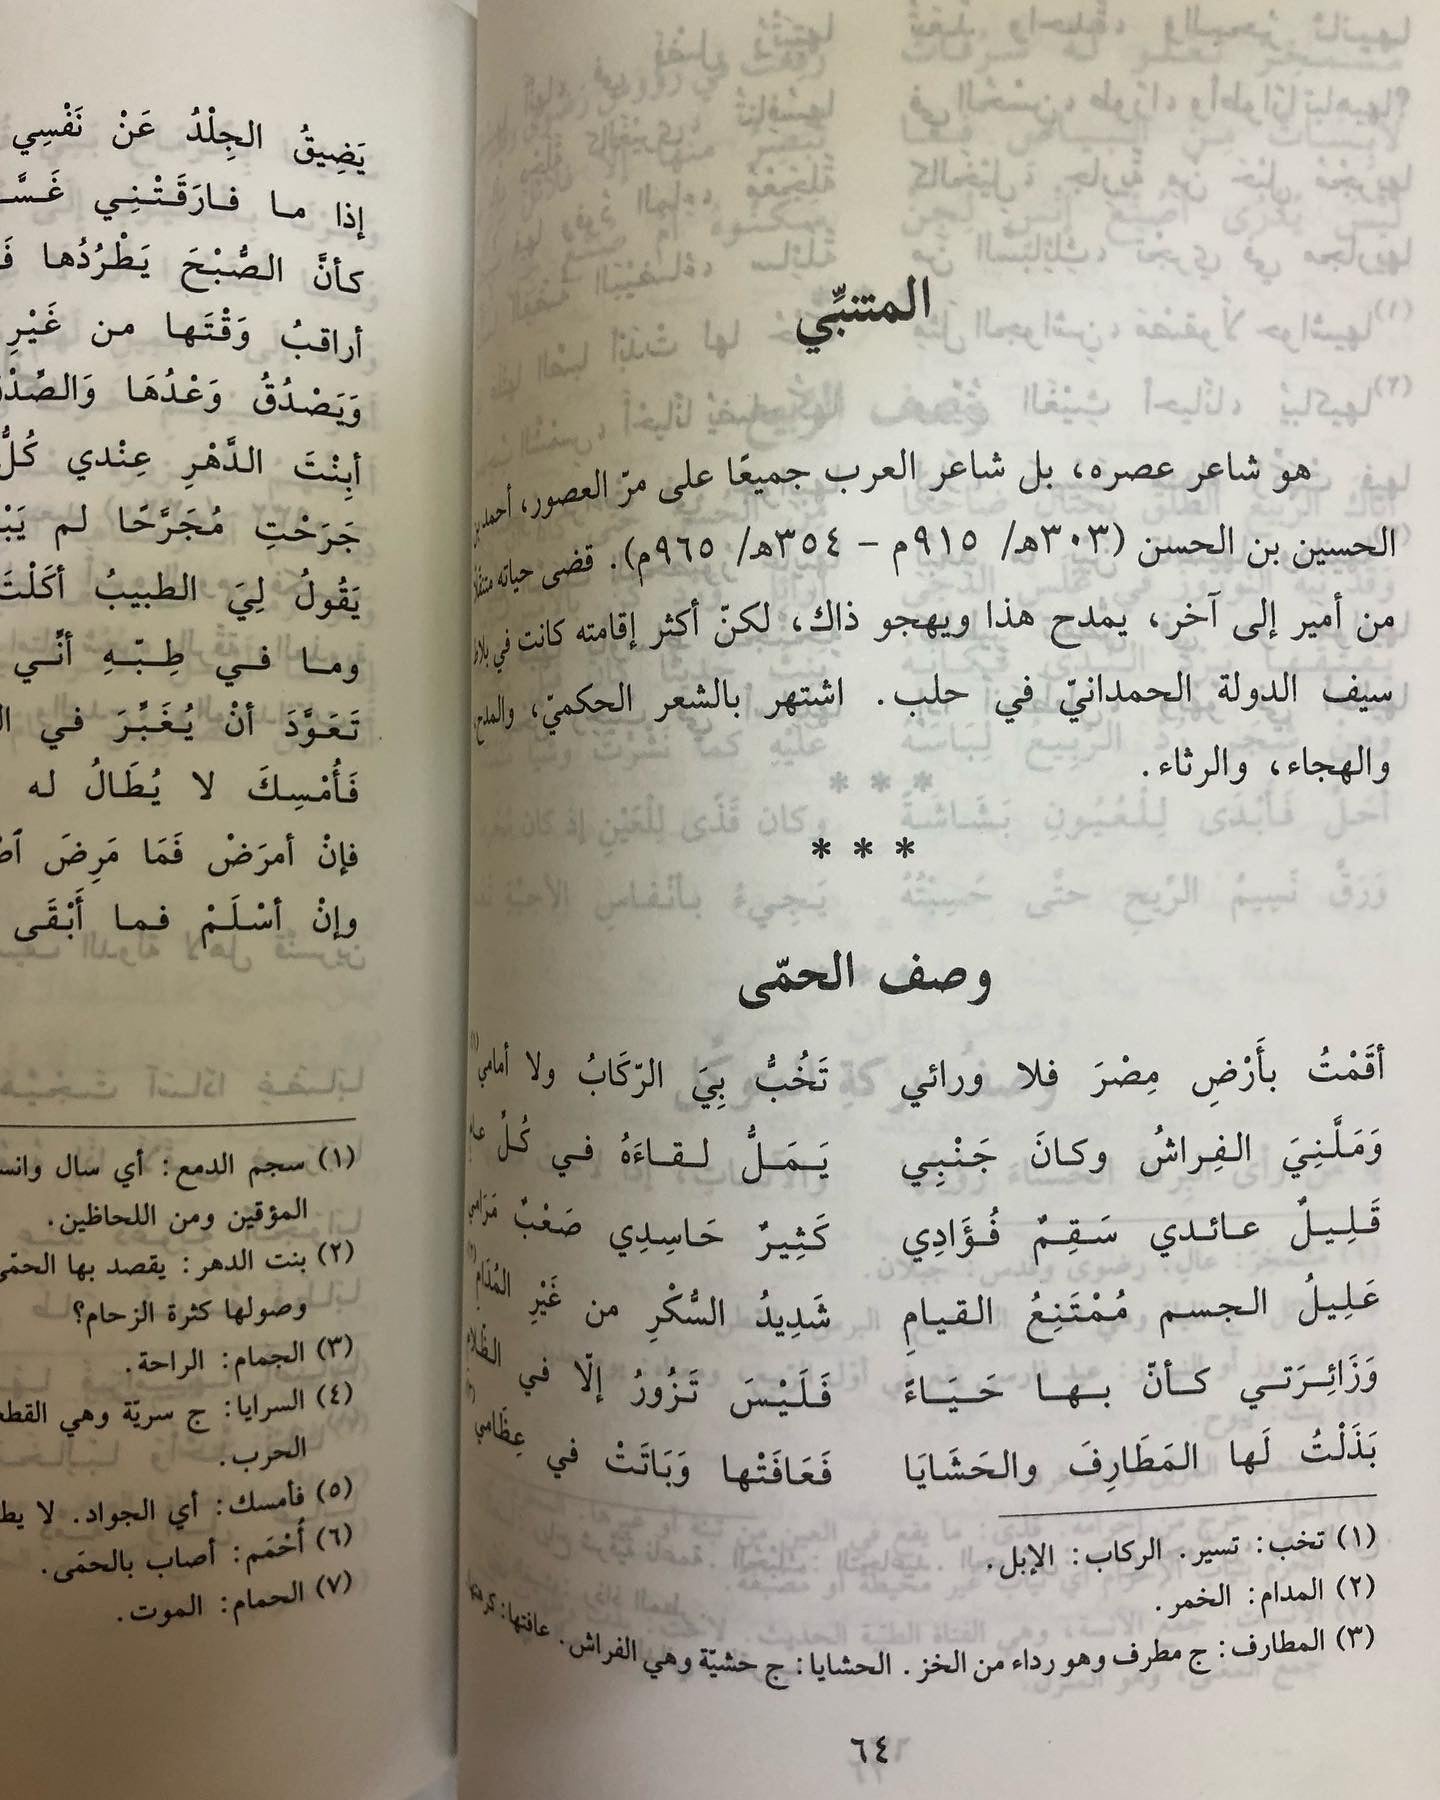 المتنبِّي
هو شاعر عصره، بل شاعر العرب جميعًا على مرّ العصور، أحمد بن
الحسين بن الحسن (٣٠٣هـ/ ٩١٥م – ٣٥٤هـ/ ٩٦٥م). قضى حياته متنقلا
من أمير إلى آخر، يمدح هذا ويهجو ذاك، لكنّ أكثر إقامته كانت في بلاط
سيف الدولة الحمدانيّ في حلب. اشتهر بالشعر الحكميّ، والمدح،
والهجاء، والرثاء.
* * *
وصف الحمّى
أقَمْتُ بأَرْضِ مِصْرَ فلا ورائي تَخُبُّ بِيَ الرّكَابُ ولا أمامي (١)
وَمَلَّنِيَ الفِراشُ وكانَ جَنْبِي يَمَلُّ لقاءَهُ في كُلِّ عام
قَلِيلٌ عائدي سَقِمٌ فُؤَادِي كَثِيرٌ حَاسِدِي صَعْبٌ مَرَامي
عَلِيلُ الجسم مُمْتَنِعُ القيامِ شَدِيدُ السُّكْرِ من غَيْرِ المُدَامِ (٢)
وَزَائِرَتي كأنّ بها حَيَاءً فَلَيْسَ تَزُورُ إلّا في الظّلامِ
بَذَلْتُ لَها المَطَارِفَ والحَشَايَا فَعَافَتْها وَبَاتَتْ في عِظَامي (٣)
(١) تخب: تسير. الركاب: الإبل.
(٢) المدام: الخمر.
(٣) المطارف: ج مطرف وهو رداء من الخز. الحشايا: ج حشيّة وهي الفراش. عافتها: كرهتها
٦٤
يَضِيقُ الجِلْدُ عَنْ نَفْسِي
إذا ما فارَقَتْنِي
كأنَّ الصُّبْحَ يَطْرُدُها
أراقبُ وَقْتَها من غَيْرِ
وَيَصْدُقُ وَعْدُهَا
أبِنْتَ الدَّهْرِ عِنْدي كُلُّ
جَرَحْتِ مُجَرَّحًا لم
يَقُولُ لِيَ الطبيبُ أكَلْتَ
وما في طِبّهِ أنّي
تَعَوَّدَ أنْ يُغَبِّرَ في
فَأُمْسِكَ لا يُطَالُ له
فإنْ أمرَضْ فَمَا مَرِضَ
وإنْ أسْلَمْ فما أَبْقَى
(١) سجم الدمع: أي سال
المؤقين ومن اللحاظين.
(٢) بنت الدهر: يقصد بها الحمّى
وصولها كثرة الزحام؟
(٣) الجمام: الراحة.
(٤) السرايا: ج سريّة وهي
الحرب.
(٥) فأمسك: أي الجواد. لا
(٦) أُحْمَم: أصاب بالحمَى.
(٧) الحمام: الموت.